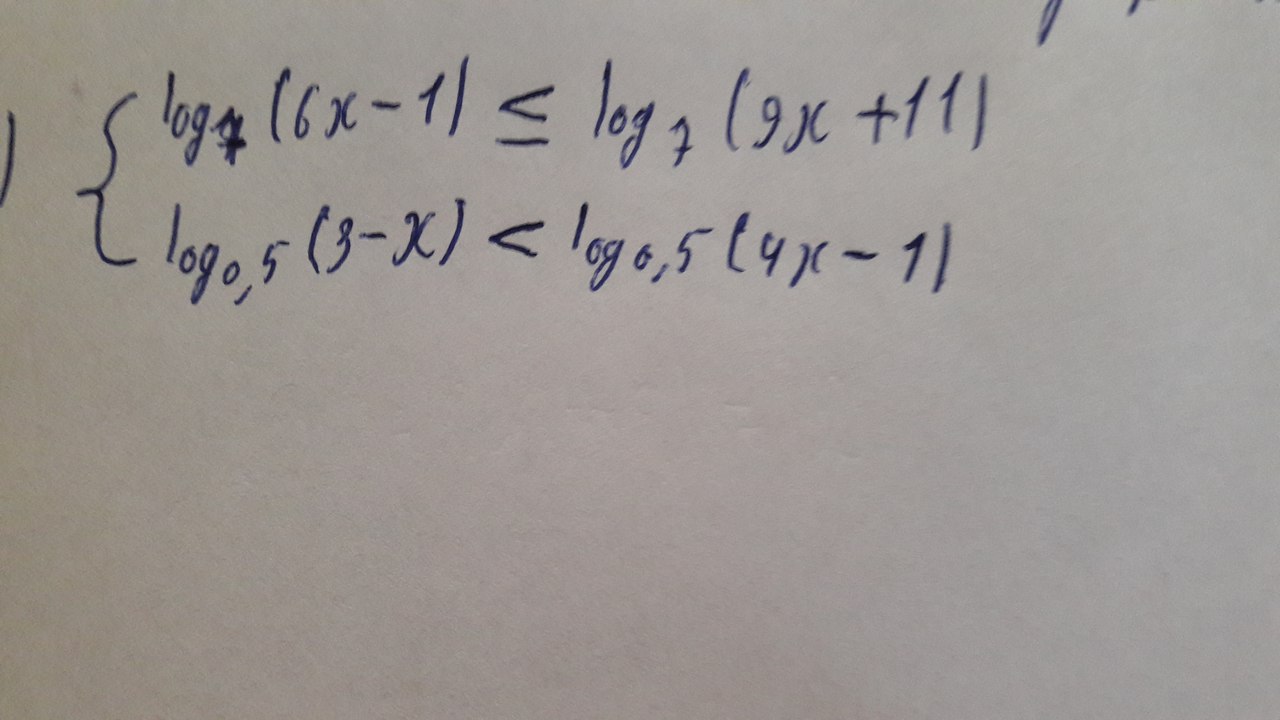 ) { log₇ (6x - 1) ≤ log₇ (9x + 11)
log₀,₅ (3 - x) < log₀,₅ (4x - 1)